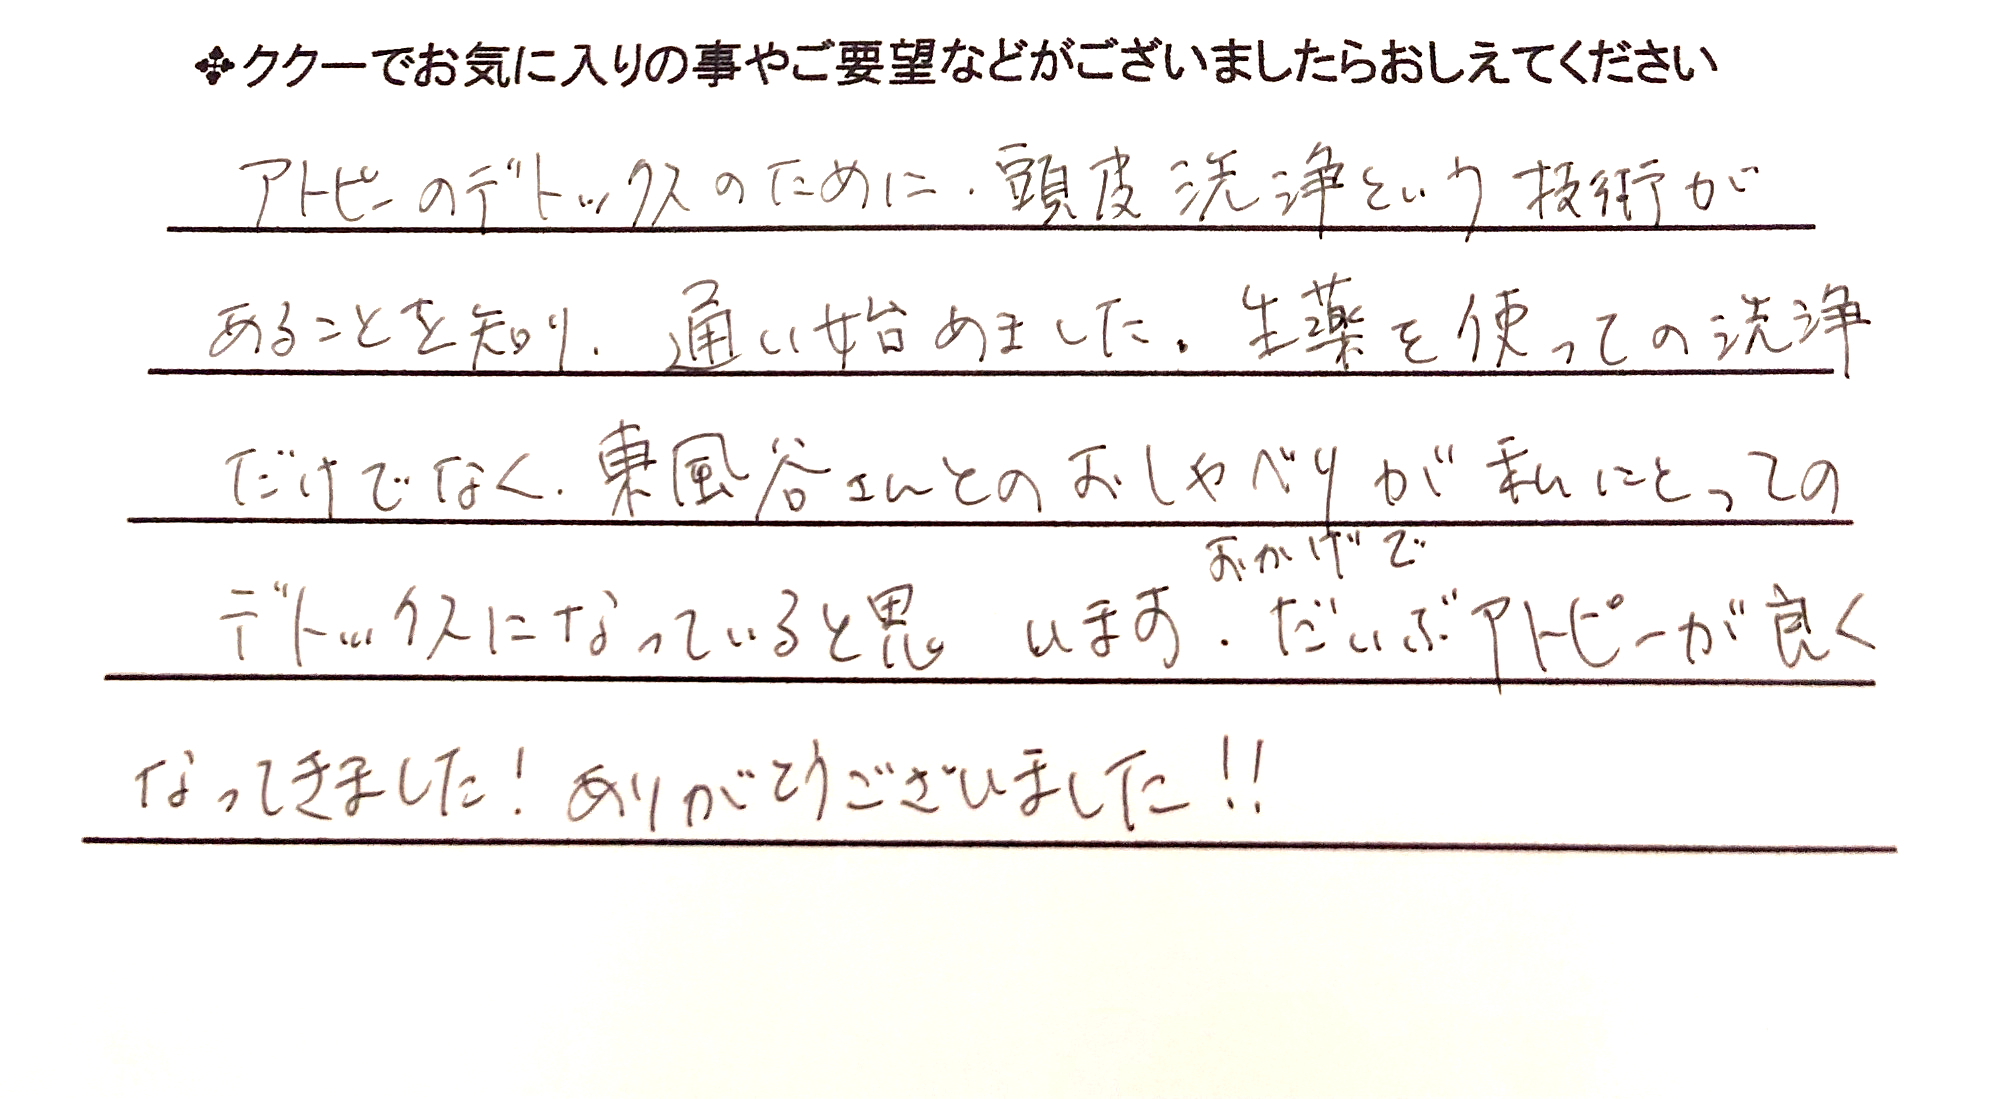 ✥ククーでお気に入りの事やご要望などがございましたらおしえてください
アトピーのデトックスのために、頭皮洗浄という技術が
あることを知り、通い始めました。生薬を使っての洗浄
だけでなく、東風谷さんとのおしゃべりが私にとっての
おかげで
デトックスになっていると思います。だいぶアトピーが良く
なってきました!ありがとうございました!!